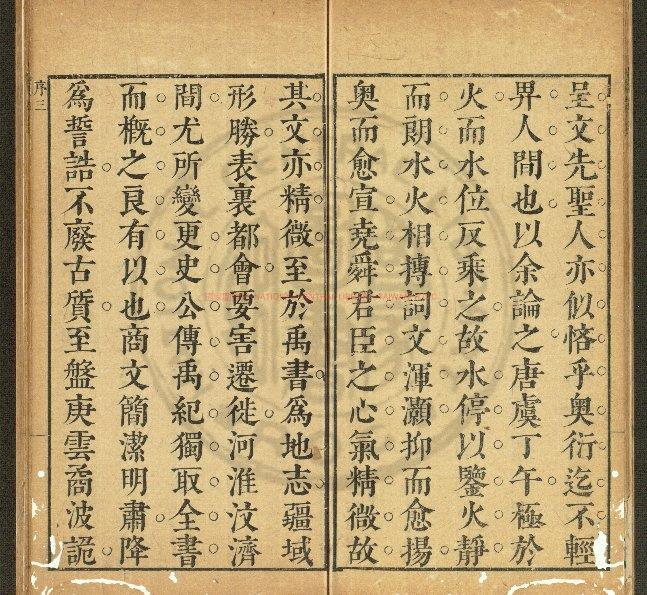 呈文先聖人亦似悋乎奧衍迄不輕
畀人間也以余論之唐虞丁午極於
火而水位反乘之故水停以鑒火靜
而朗水火相摶詞文渾灝抑而愈揚
奧而愈宣堯舜君臣之心氣精微故
其文亦精微至於禹書爲地志疆域
形勝表裏都會要害遷徙河淮汶濟
間尤所變更史公傳禹紀獨取全書
而槪之良有以也商文簡潔明肅降
爲誓誥不廢古質至盤庚雲矞波詭
序三